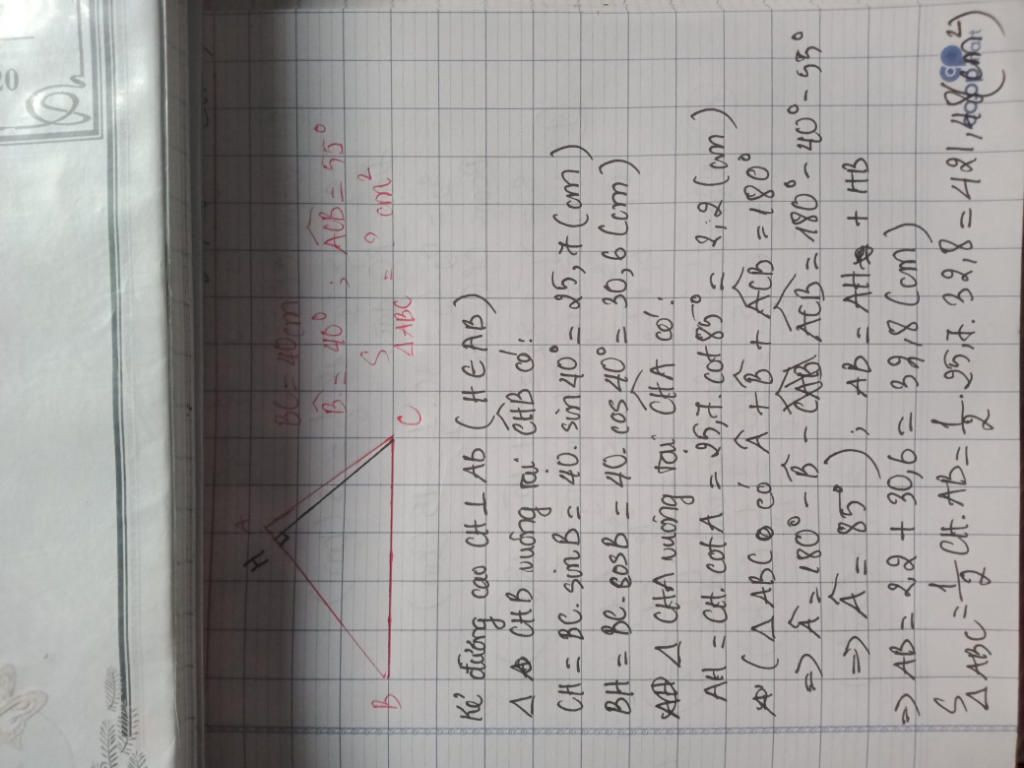 BC = 40cm
B̂ = 40° ; ÂCB = 55°
S△ABC = ? cm²
A
H
B
C
Kẻ đường cao CH ⊥ AB (H ∈ AB)
△ CHB vuông tại ĈHB có:
CH = BC. sin B = 40. sin 40° = 25,7 (cm)
BH = BC. cos B = 40. cos 40° = 30,6 (cm)
△ CHA vuông tại ĈHA có:
AH = CH. cot A = 25,7. cot 85° = 2,2 (cm)
(△ ABC có Â + B̂ + ÂCB = 180°
=> Â = 180° - B̂ - ÂCB = 180° - 40° - 55°
=> Â = 85° ) ; AB = AH + HB
=> AB = 2,2 + 30,6 = 32,8 (cm)
S△ABC = 1/2 CH. AB = 1/2 . 25,7. 32,8 = 421,48 (cm²)